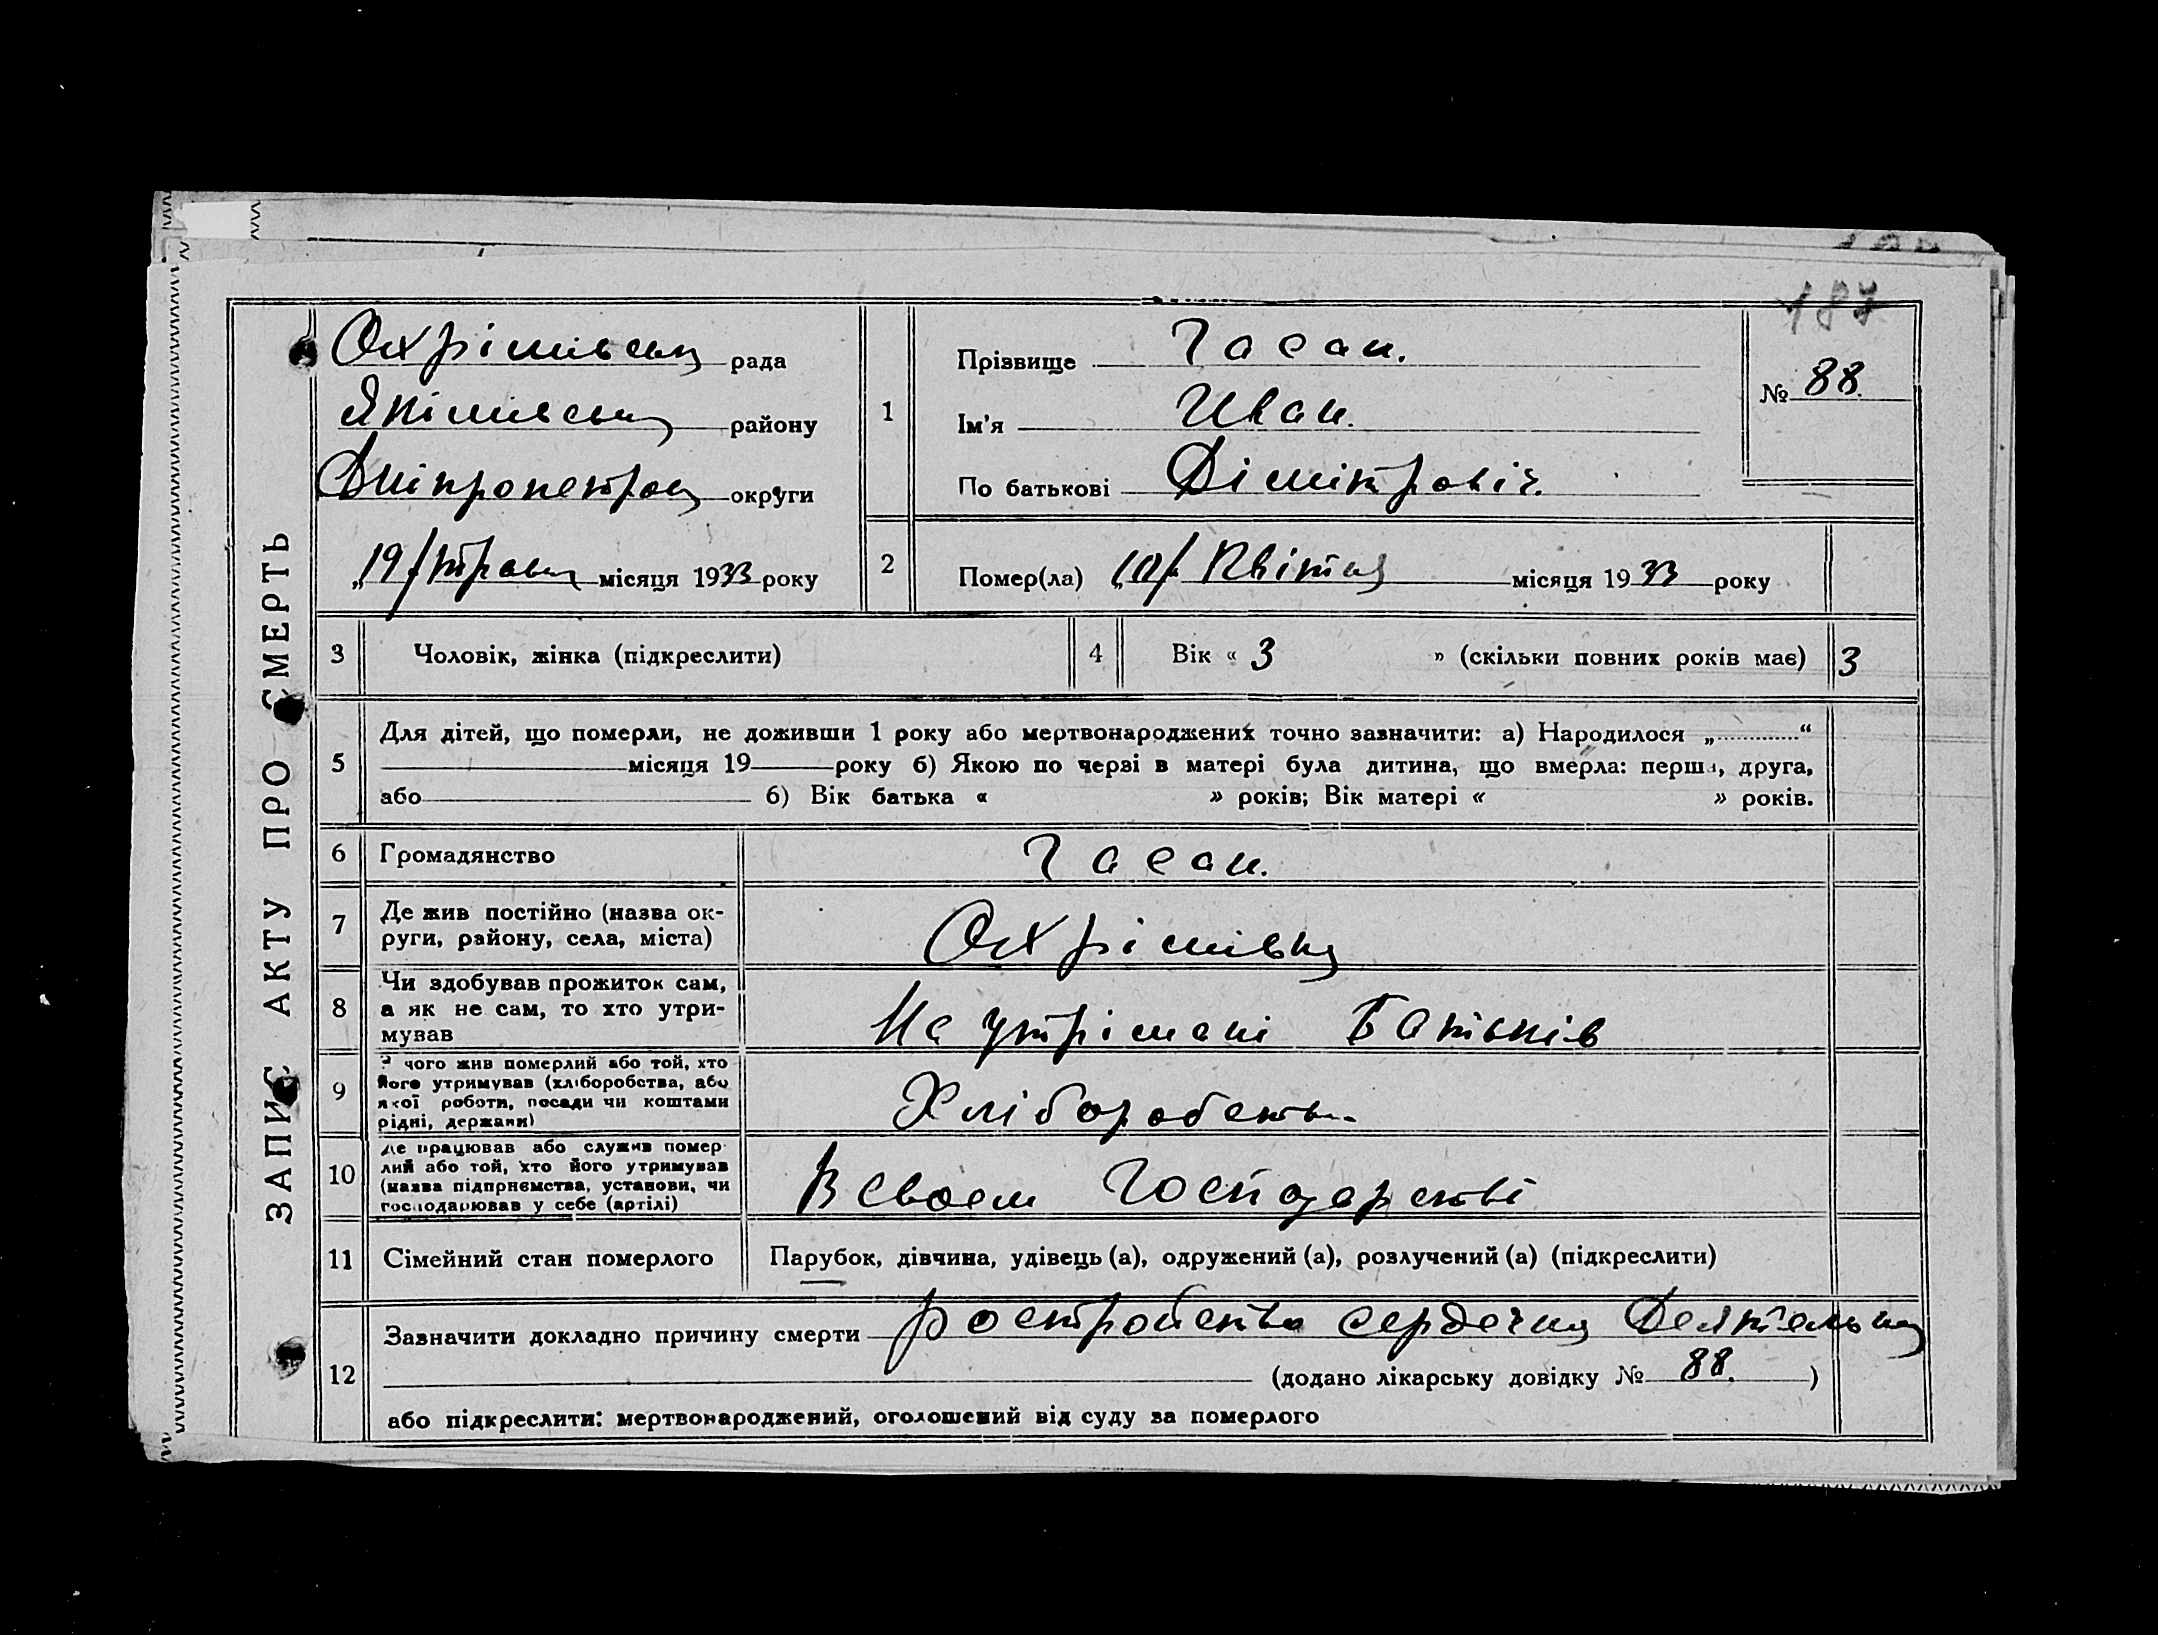 187
ЗАПИС АКТУ ПРО СМЕРТЬ
Охрімівськ рада
Якімівськ району
Дніпропетров округи
„19/ травн місяця 1933 року
1
Прізвище Гасан.
Ім'я Иван.
По батькові Дімітровіч.
№ 88.
2
Помер(ла) „10/ Квітня місяця 1933 року
3 Чоловік, жінка (підкреслити)
4 Вік « 3 » (скільки повних років має) 3
5 Для дітей, що померли, не доживши 1 року або мертвонароджених точно зазначити: а) Народилося „ “
місяця 19 року б) Якою по черзі в матері була дитина, що вмерла: перша, друга,
або б) Вік батька « » років; Вік матері « » років.
6 Громадянство Гасан.
7 Де жив постійно (назва ок-
руги, району, села, міста) Охрімівка
8 Чи здобував прожиток сам,
а як не сам, то хто утри-
мував На утрімані Батьків
9 З чого жив померлий або той, хто
його утримував (хліборобства, або
якої роботи, посади чи коштами
рідні, держави) Хліборобств.
10 Де працював або служив помер-
лий або той, хто його утримував
(назва підприємства, установи, чи
господарював у себе (артілі) В своем Господарстві
11 Сімейний стан померлого Парубок, дівчина, удівець (а), одружений (а), розлучений (а) (підкреслити)
12 Зазначити докладно причину смерти росстройство сердечна Деятельн
(додано лікарську довідку № 88. )
або підкреслити: мертвонароджений, оголошений від суду за померлого